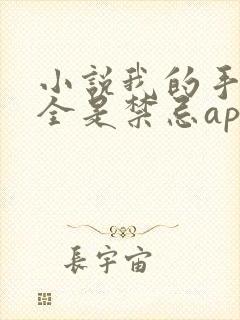 小說我的手
全是禁忌ap
長宇宙